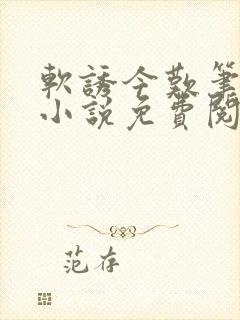 軟誘今歎筆
小說免費閱
范存